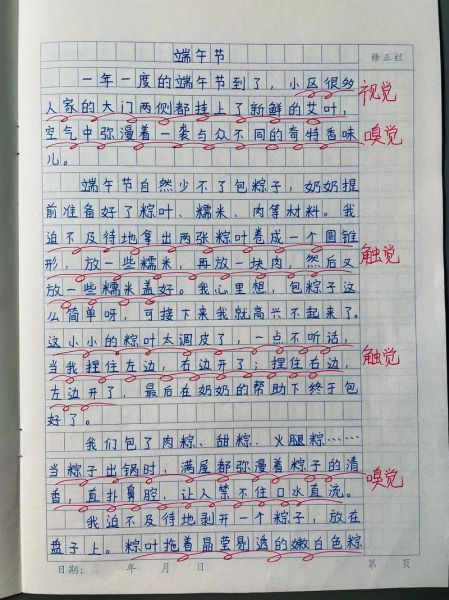 端午节
修正栏
一年一度的端午节到了，小区很多
人家的大门两侧都挂上了新鲜的艾叶，
视觉
空气中弥漫着一袭与众不同的奇特香味
嗅觉
儿。
端午节自然少不了包粽子，奶奶提
前准备好了粽叶、糯米、肉等材料。我
迫不及待地拿出两张粽叶卷成一个圆锥
形，放一些糯米，再放一块肉，然后又
触觉
放一些糯米盖好。我心里想，包粽子这
么简单呀，可接下来我就高兴不起来了。
这小小的粽叶太调皮了，一点不听话，
当我捏住左边，右边开了；捏住右边，
触觉
左边开了，最后在奶奶的帮助下终于包
好了。
我们包了肉粽、甜粽、火腿粽……
当粽子出锅时，满屋都弥漫着粽子的清
香，直扑鼻腔，让人禁不住口水直流。
嗅觉
我迫不及待地剥开一个粽子，放在
盘子上。粽叶拖着晶莹剔透的嫩白色粽
日期： 年 月 日 第 页